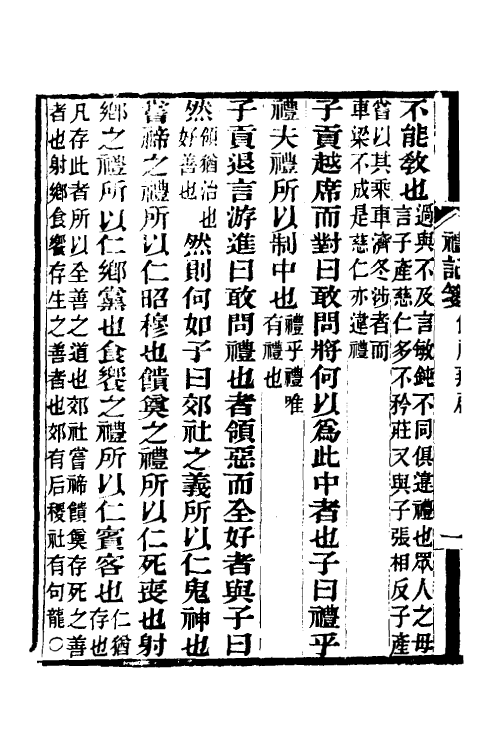 不能教也過與不及言敏鈍不同俱違禮也眾人之母
言子產慈仁多不矜莊又與子張相反子產
嘗以其乘車濟冬涉者而
車梁不成是慈仁亦違禮
子貢越席而對曰敢問將何以為此中者也子曰禮乎
禮夫禮所以制中也禮乎禮唯
有禮也
子貢退言游進曰敢問禮也者領惡而全好者與子曰
然領猶治也
好善也然則何如子曰郊社之義所以仁鬼神也
嘗禘之禮所以仁昭穆也饋奠之禮所以仁死喪也射
鄉之禮所以仁鄉黨也食饗之禮所以仁賓客也仁猶
存也
凡存此者所以全善之道也郊社嘗禘饋奠存死之善
者也射鄉食饗存生之善者也郊有后稷社有句龍○
禮記箋
一